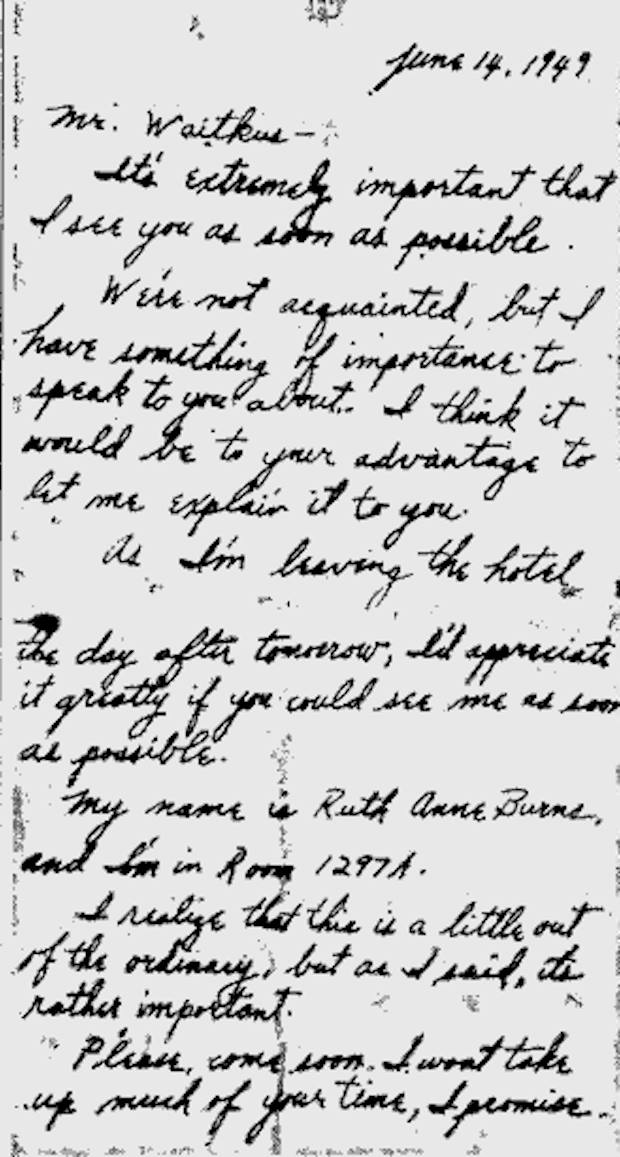 June 14, 1949
Mr. Waitkus—
It's extremely important that
I see you as soon as possible.
We're not acquainted, but I
have something of importance to
speak to you about. I think it
would be to your advantage to
let me explain it to you.
As I'm leaving the hotel
the day after tomorrow, I'd appreciate
it greatly if you could see me as soon
as possible.
My name is Ruth Anne Burns,
and I'm in Room 1297A.
I realize that this is a little out
of the ordinary, but as I said, its
rather important.
Please, come soon. I wont take
up much of your time, I promise.